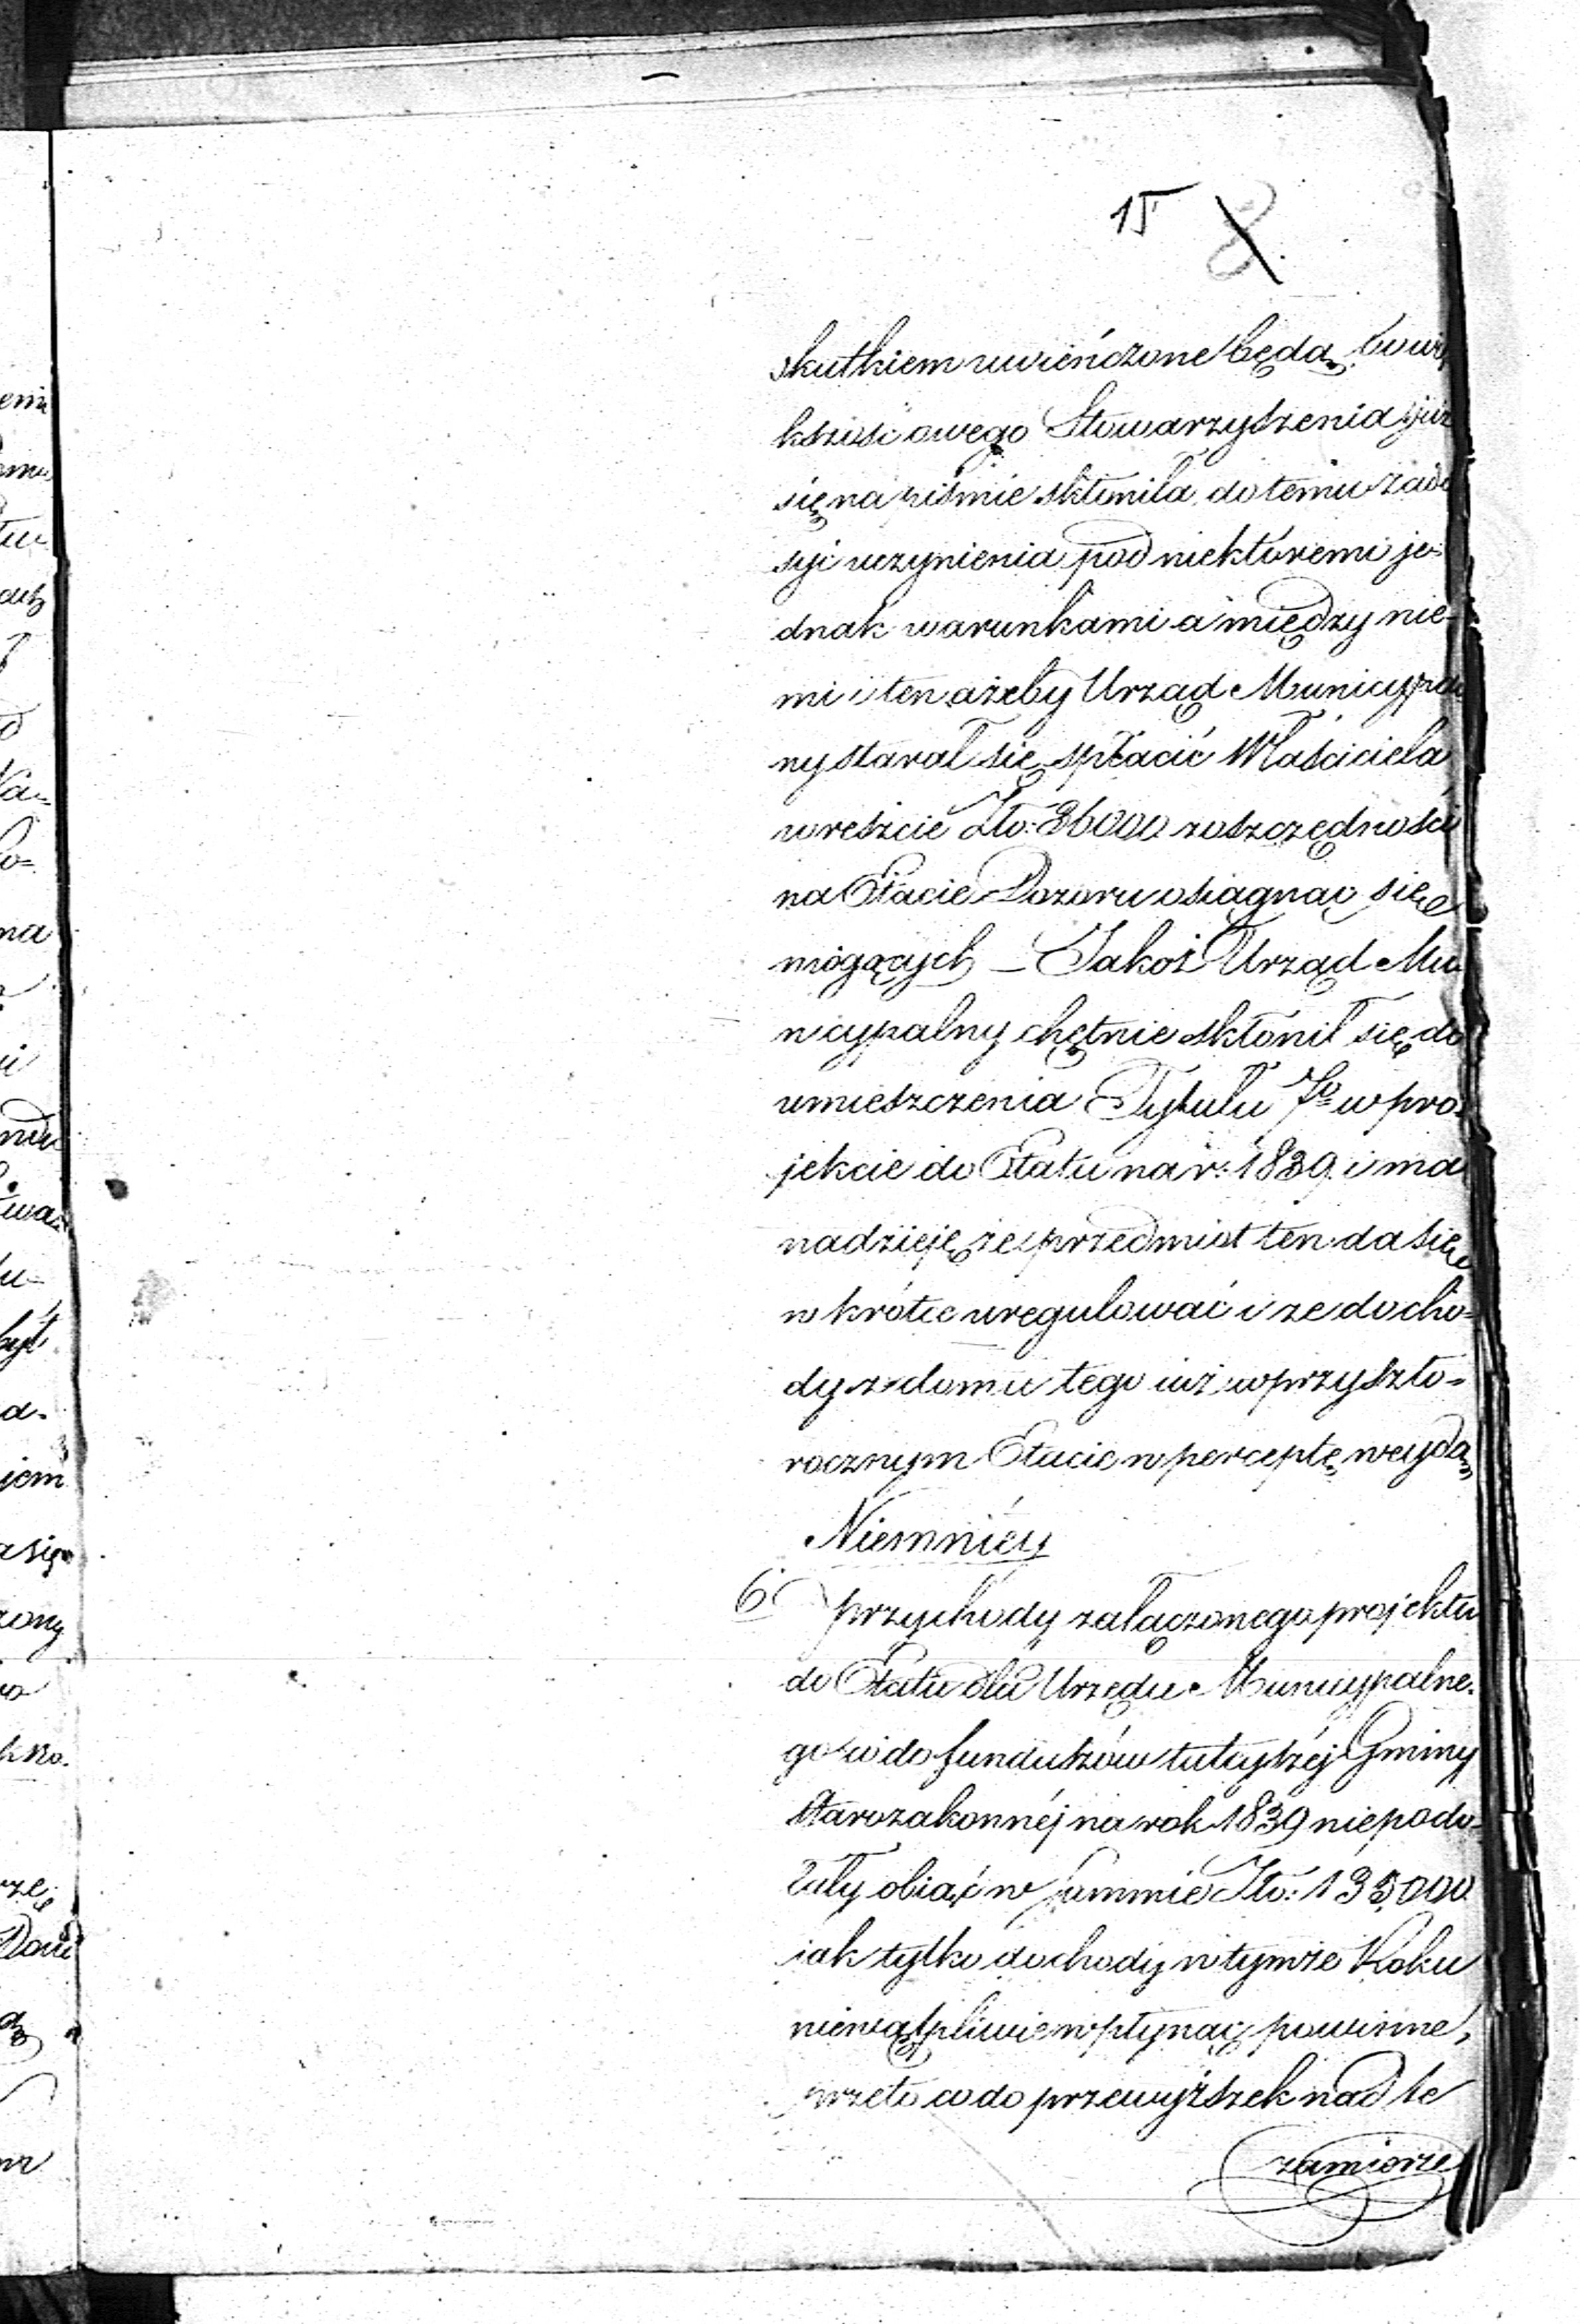 15 8.
skutkiem uwieńczone będą, bo wię
kszość owego Stowarzyszenia już
się na piśmie skłoniła do temu zado
syć uczynienia pod niektóremi je-
dnak warunkami a między nie-
mi i ten ażeby Urząd Municypal
ny starał się spłacić Właściciela
w reszcie Złto: 36000 z oszczędności
na Etacie Dozoru osiągnąć się
mogących – Jakoż Urząd Mu
nicypalny chętnie skłonił się do
umieszczenia Tytułu 7o w pro
jekcie do Etatu na r: 1839. i ma
nadzieję że przedmiot ten da się
w krótce uregulować i że docho=
dy z domu tego iuż w przyszło=
rocznym Etacie w perceptę wejdą
Niemniéy
6 przychody załączonego projektu
do Etatu dla Urzędu Municypalne-
go co do funduszów tutejszéj Gminy
Starozakonnéj na rok 1839 niepodo=
łały obiąć w summie Złto: 135,000
iak tylko dochody w tymże Roku
niewątpliwie wpłynąć powinne,
przeto co do przewyższek nad te
zamierze